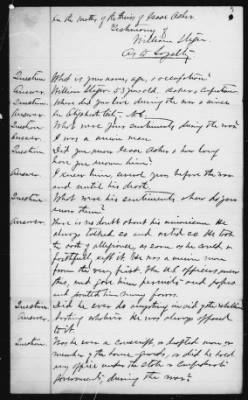 In the matter of the claim of Isaac Asher
Testimony
William Slifer
As to Loyalty
Question What is your name, age, & occupation?
Answer. William Slifer 53 years old.
Question Where did you live during the war & since
Answer.
Question What were your sentiments during the war?
Answer I was a union man
Question. Did you know Isaac Asher & how long
have you known him?
Answer. I knew him, several years before the war
and until his death.
Question. What were his sentiments & how do you
know them?
Answer. There is no doubt about his unionism. He
always talked as and acted as He took
the oath of allegiance, as soon as he could &
faithfully kept it. He was a union man
from the very first. The U.S. officers knew
this, and gave him permits and
and granted him many favors.
Question Did he ever do anything in aid of the rebellion
Answer. nothing whatever He was always opposed
to it
Question Was he ever a conscript, or drafted man or
member of the home guards, or did he hold
any office under the State or Confederate
Governments, during the war?